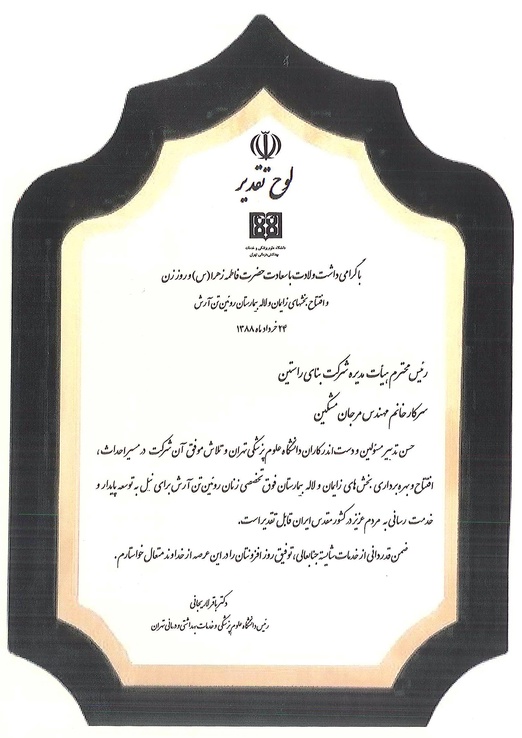 لوح تقدیر
دانشگاه علوم پزشکی و خدمات
بهداشتی درمانی تهران
با گرامی داشت ولادت با سعادت حضرت فاطمه زهرا (س) و روز زن
و افتتاح بخشهای زایمان و لاله بیمارستان روئین تن آرش
۲۴ خرداد ماه ۱۳۸۸
رئیس محترم هیأت مدیره شرکت بنای راستین
سرکار خانم مهندس مرجان مشکین
حسن تدبیر مسئولین و دست اندرکاران دانشگاه علوم پزشکی تهران و تلاش موفق آن شرکت در مسیر احداث،
افتتاح و بهره برداری بخش های زایمان و لاله بیمارستان فوق تخصصی زنان روئین تن آرش برای نیل به توسعه پایدار و
خدمت رسانی به مردم عزیز در کشور مقدس ایران قابل تقدیر است.
ضمن قدردانی از خدمات شایسته جنابعالی، توفیق روز افزونتان را در این عرصه از خداوند متعال خواستارم.
دکتر باقر لاریجانی
رئیس دانشگاه علوم پزشکی و خدمات بهداشتی و درمانی تهران